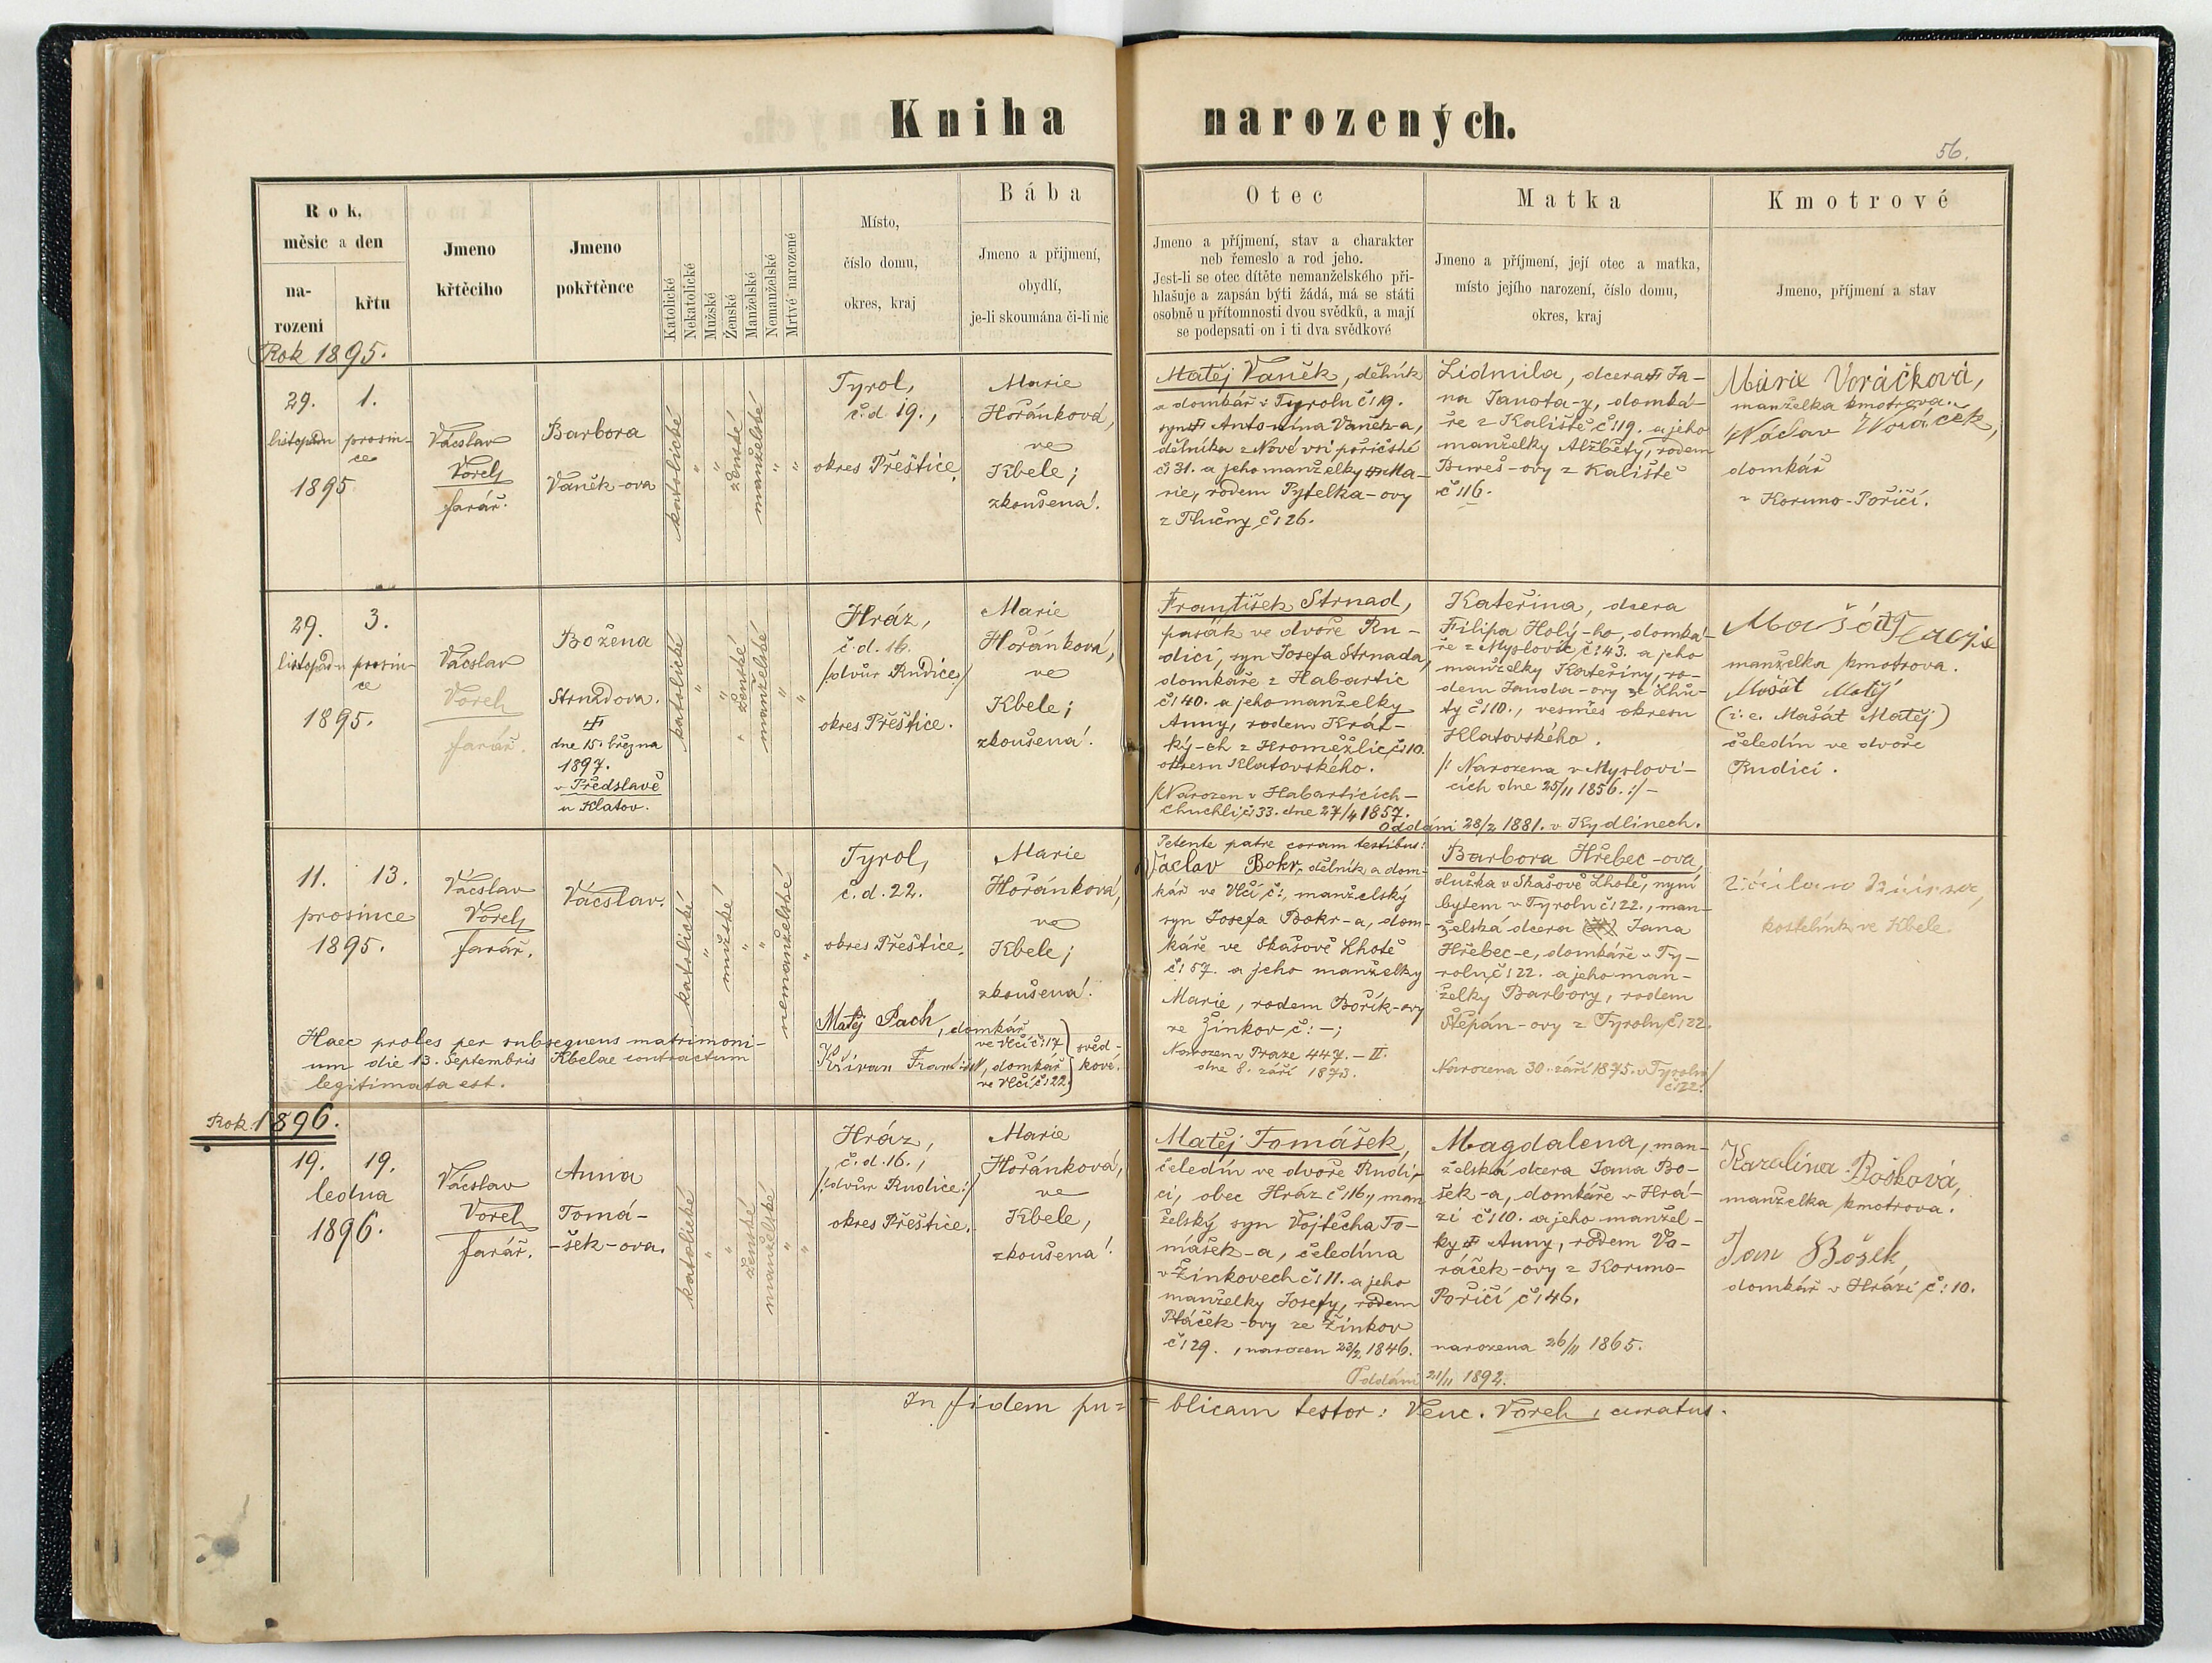 Kniha narozených.
56.
Rok,
měsíc a den
na-
rození
křtu
Jmeno
křtěcího
Jmeno
pokřtěnce
Katolické
Nekatolické
Mužské
Ženské
Manželské
Nemanželské
Mrtvě narozené
Místo,
číslo domu,
okres, kraj
Bába
Jmeno a přijmení,
obydlí,
je-li skoumána či-li nic
Otec
Jmeno a příjmení, stav a charakter
neb řemeslo a rod jeho.
Jest-li se otec dítěte nemanželského při-
hlašuje a zapsán býti žádá, má se státi
osobně u přítomnosti dvou svědků, a mají
se podepsati on i ti dva svědkové
Matka
Jmeno a příjmení, její otec a matka,
místo jejího narození, číslo domu,
okres, kraj
Kmotrové
Jmeno, příjmení a stav
Rok 1895.
29. 1.
listopadu prosin-
ce
1895
Václslav
Vorel
farář.
Barbora
Vaněk-ova
katolické
" "
ženské
manželské
" "
Tyrol,
č.d. 19.,
okres Přeštice.
Marie
Hořánková,
ve
Kbele;
zkoušená.
Matěj Vaněk, dělník
a domkář v Tyrolu č: 19.
syn Antonína Vaněk-a,
dělníka z Nové vsi poříčské
č: 31. a jeho manželky Ma-
rie, rodem Pytelka-ovy
z Tlučny č: 26.
Lidmila, dcera Ja-
na Janota-y, domká-
ře z Kaliště č: 19. a jeho
manželky Alžběty, rodem
Bureš-ovy z Kaliště
č 16.
Marie Voráčková,
manželka kmotrova.
Václav Voráček,
domkář
v Koruno-Poříčí.
29. 3.
listopadu prosin-
ce
1895.
Václslav
Vorel
farář.
Božena
Strnadova.
dne 15. března
1897.
v Předslavě
u Klatov.
katolické
" "
ženské
manželské
" "
Hráz,
č.d. 16.
/:dvůr Rudice:/
okres Přeštice.
Marie
Hořánková,
ve
Kbele;
zkoušená.
František Strnad,
pasák ve dvoře Ru-
dici, syn Josefa Strnada,
domkáře z Habartic
č: 40. a jeho manželky
Anny, rodem Krát-
ký-ch z Kroměžlic, č: 10.
okresu Klatovského.
/:Narozen v Habarticích-
Chuchli č: 33. dne 27/4 1857.
Kateřina, dcera
Filipa Holý-ho, domká-
ře z Myslovic č: 43. a jeho
manželky Kateřiny, ro-
dem Janda-ovy ze Lhů-
ty č: 10., vesměs okresu
Klatovského.
/: Narozena v Myslovi-
cích dne 25/11 1856.:/-
Oddáni 28/2 1881. v Kydlinech.
Mašát Marie
manželka kmotrova.
Mašát Matěj
(i.e. Mašát Matěj)
čeledín ve dvoře
Rudici.
11. 13.
prosince
1895.
Václslav
Vorel
farář.
Václslav.
katolické
"
mužské
" "
nemanželské
"
Tyrol,
č.d. 22.
okres Přeštice.
Marie
Hořánková,
ve
Kbele;
zkoušená.
Matěj Pach, domkář
ve Vlčí č: 17
Křivan František, domkář
ve Vlčí č: 22.
svěd-
kové.
Haec proles per subsequens matrimoni-
um die 13. Septembris Kbelae contractum
legitimata est.
Petente patre coram testibus:
Václav Bokr, dělník a dom-
kář ve Vlčí č:, manželský
syn Josefa Bokr-a, dom-
káře ve Skašově Lhotě
č: 57. a jeho manželky
Marie, rodem Bořík-ovy
ze Žinkov č: -;
Narozen v Praze 447. - II.
dne 8. září 1873.
Barbora Hřebec-ova,
služka v Skašově Lhotě, nyní
bytem v Tyrolu č: 22., man-
želská dcera Jana
Hřebec-e, domkáře v Ty-
rolu, č: 22. a jeho man-
želky Barbory, rodem
Štěpán-ovy z Tyrolu, č: 22.
Narozena 30. září 1875. v Tyrolu
č: 22.
kostelník ve Kbele.
Rok 1896.
19. 19.
ledna
1896.
Václslav
Vorel
farář.
Anna
Tomá-
-šek-ova.
katolické
" "
ženské
manželské
" "
Hráz,
č.d. 16.,
/:dvůr Rudice:/
okres Přeštice.
Marie
Hořánková,
ve
Kbele,
zkoušená.
Matěj Tomášek,
čeledín ve dvoře Rudi-
ci, obec Hráz č: 16., man
želský syn Vojtěcha To-
mášek-a, čeledína
v Žinkovech č: 11. a jeho
manželky Josefy, rodem
Ptáček-ovy ze Žinkov
č: 29., narozen 23/2 1846.
Magdalena, man-
želská dcera Jana Bo-
šek-a, domkáře v Hrá-
zi č: 10. a jeho manžel-
ky Anny, rodem Vo-
ráček-ovy z Koruno-
Poříčí, č: 46.
narozena 26/11 1865.
Oddáni 21/11 1892.
Karolina Bošková,
manželka kmotrova.
Jan Bošek,
domkář v Hrázi, č: 10.
In fidem pu= =blicam testor: Venc. Vorel, curatus.